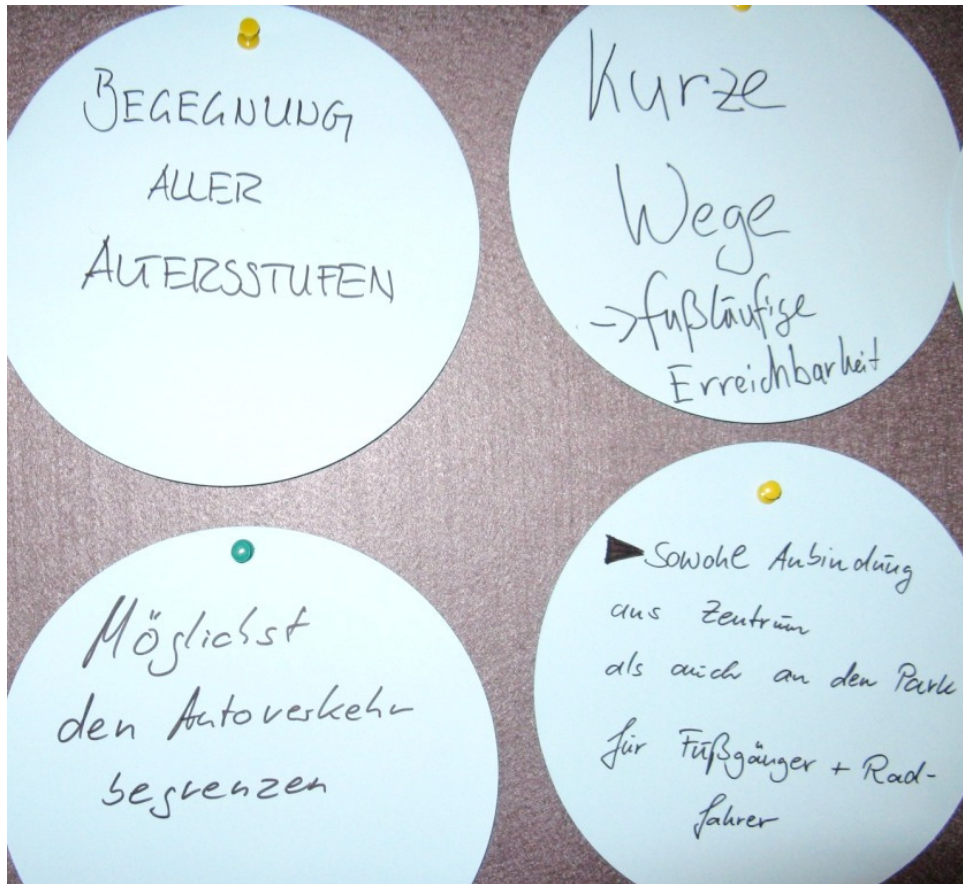 BEGEGNUNG
ALLER
ALTERSSTUFEN
Kurze
Wege
-> fußläufige
Erreichbarkeit
Möglichst
den Autoverkehr
begrenzen
Sowohl Anbindung
ans Zentrum
als auch an den Park
für Fußgänger + Rad-
fahrer